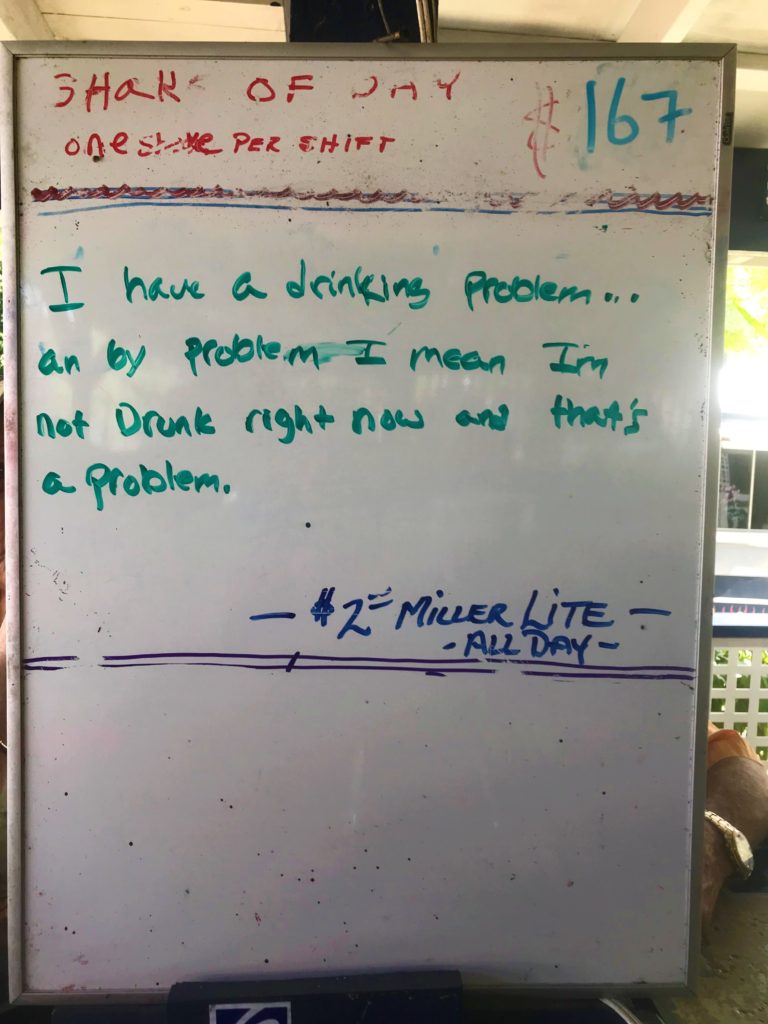 SHAK OF DAY $167
one shake PER SHIFT
I have a drinking problem...
an by problem I mean I'm
not Drunk right now and that's
a problem.
— $2 MILLER LITE —
- ALL DAY -